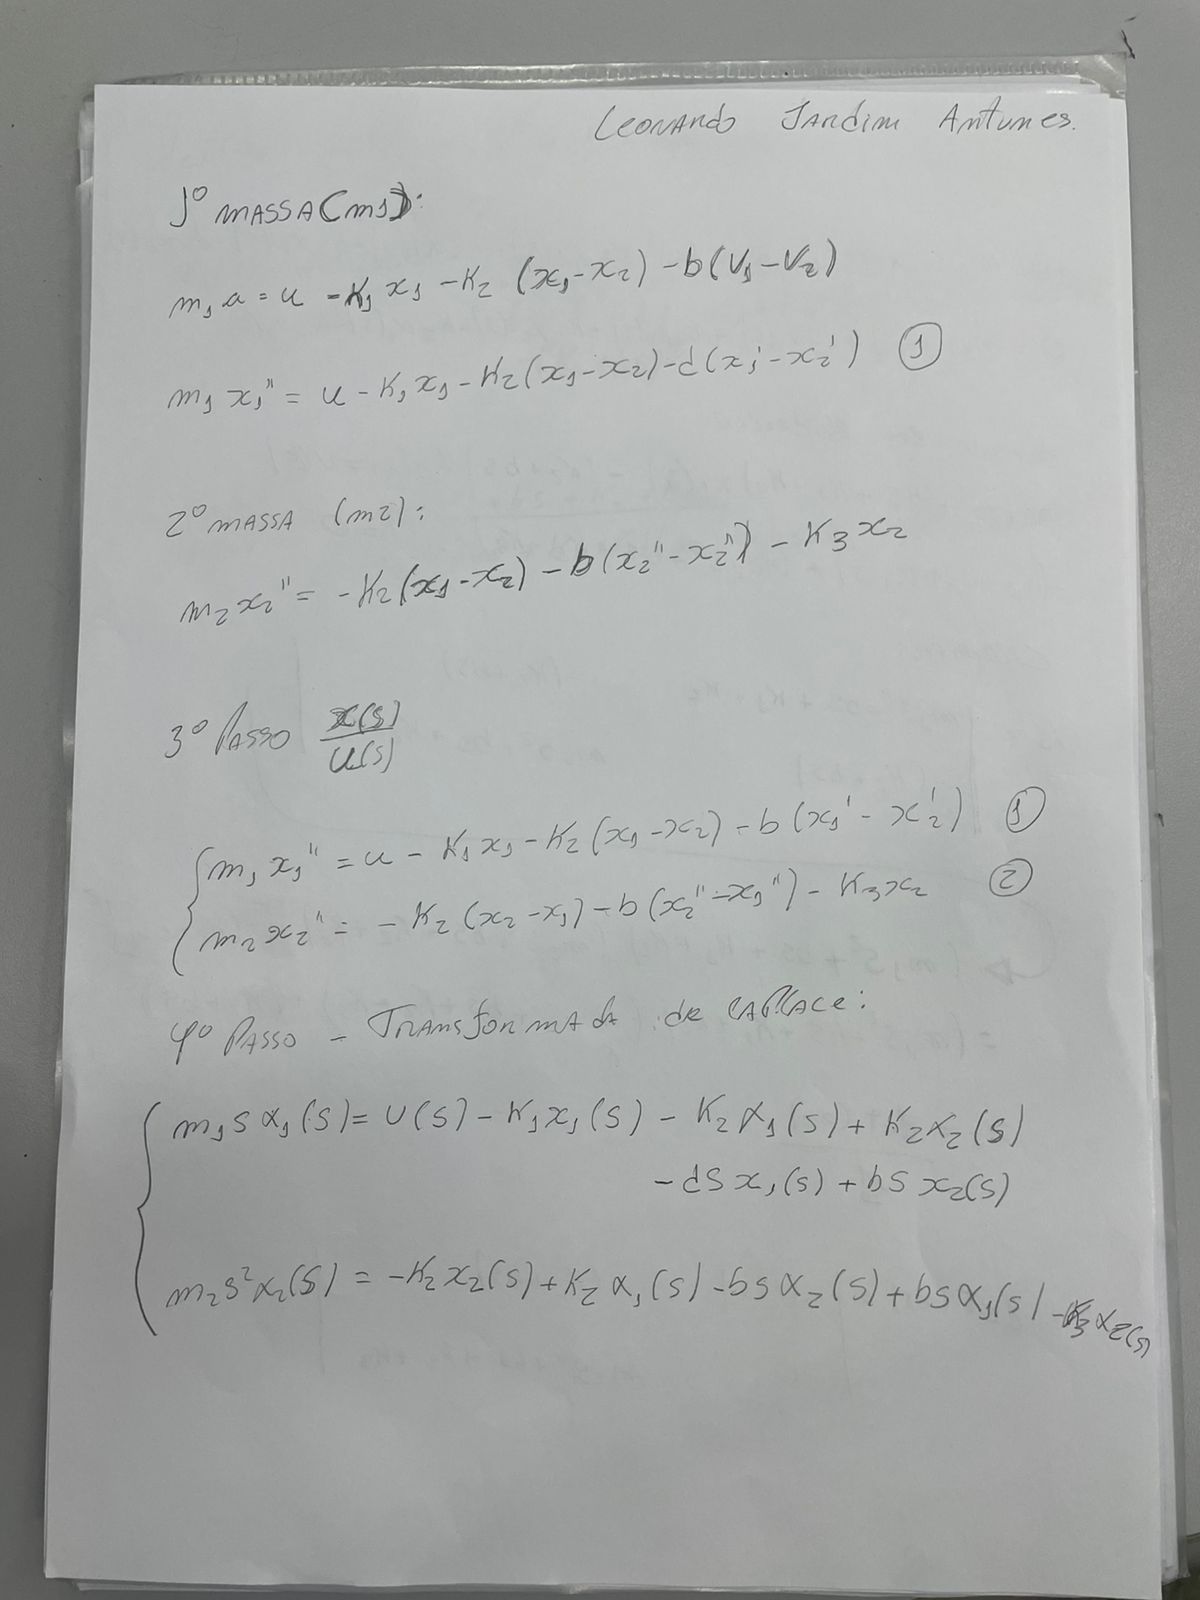 Leonardo Jardim Antunes.
1º MASSA (m1):
m₁a = u - K₁x₁ - K₂ (x₁ - x₂) - b(V₁ - V₂)
m₁x₁'' = u - K₁x₁ - K₂(x₁ - x₂) - d(x₁' - x₂') ①
2º MASSA (m2):
m₂x₂'' = -K₂(x₁ - x₂) - b(x₂'' - x₂'') - K₃x₂
3º Passo x(s)/U(s)
m₁x₁'' = u - K₁x₁ - K₂(x₁ - x₂) - b(x₁' - x₂') ①
m₂x₂'' = -K₂(x₂ - x₁) - b(x₂'' - x₁'') - K₃x₂ ②
4º Passo - Transformada de Laplace:
m₁s x₁(s) = U(s) - K₁x₁(s) - K₂x₁(s) + K₂x₂(s)
- dS x₁(s) + bS x₂(s)
m₂s²x₂(s) = -K₂x₂(s) + K₂x₁(s) - bsx₂(s) + bsx₁(s) - K₃x₂(s)